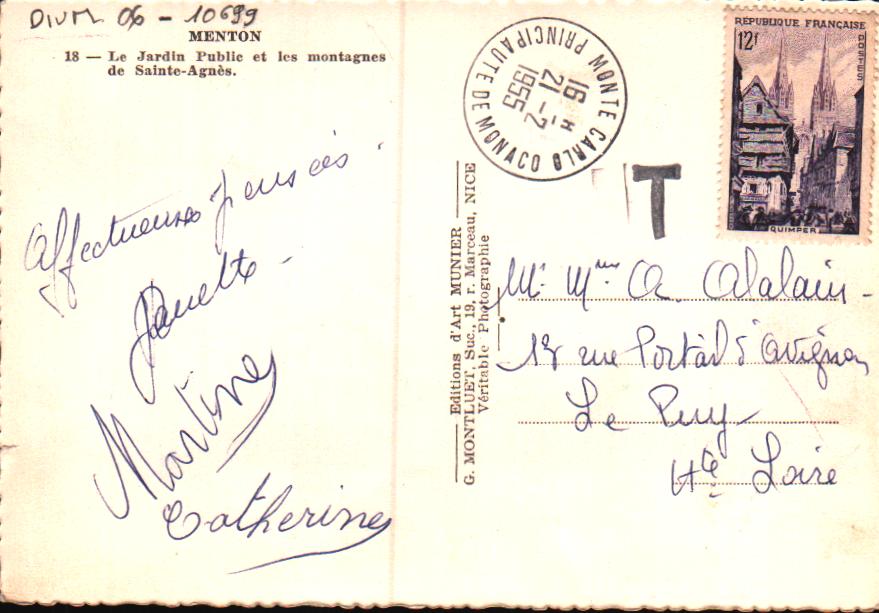 DIVM 06 - 10699
MENTON
18 — Le Jardin Public et les montagnes
de Sainte-Agnès.
Affectueuses pensées
Martine
Catherine
Editions d'Art MUNIER
G. MONTLUET, Suc., 19, r. Marceau, NICE
Véritable Photographie
MONTE CARLO
PRINCIPAUTE DE MONACO
16 H
21 - 2
1955
T
REPUBLIQUE FRANÇAISE
12f
POSTES
QUIMPER
Mr Mme A. Alalain
rue Portail d'Avignon
Le Puy
Hte Loire